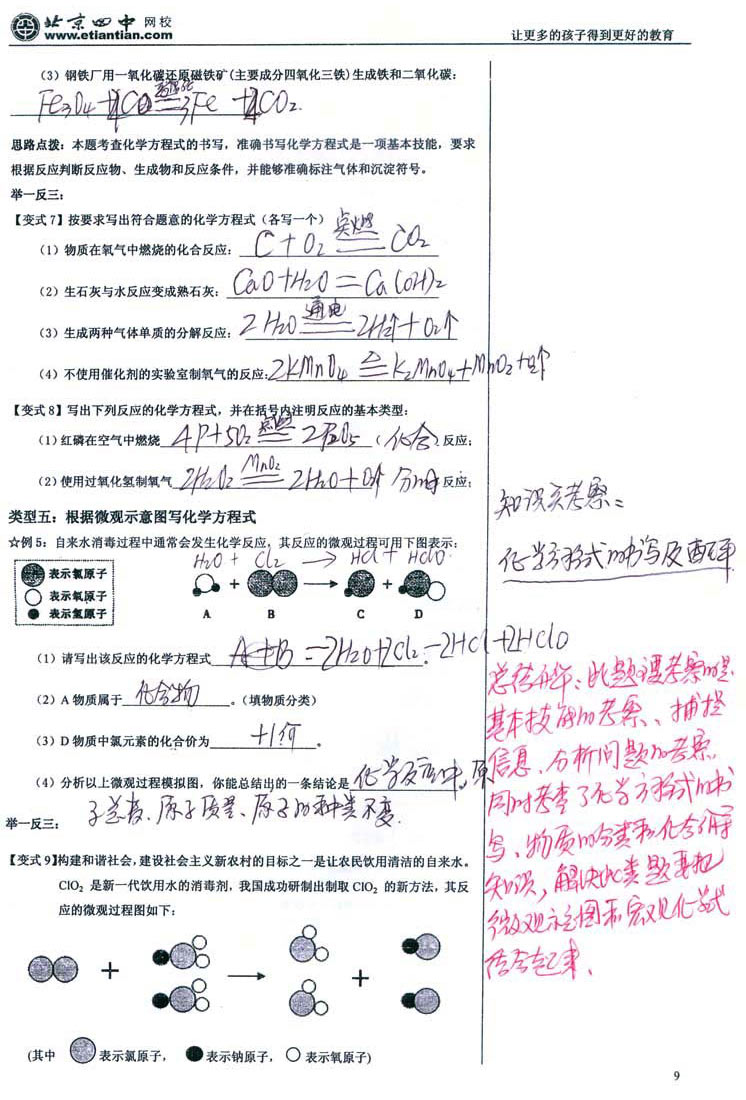 北京四中 网校
www.etiantian.com
让更多的孩子得到更好的教育
(3) 钢铁厂用一氧化碳还原磁铁矿(主要成分四氧化三铁)生成铁和二氧化碳:
Fe3O4 + 4CO 高温 3Fe + 4CO2
思路点拨: 本题考查化学方程式的书写, 准确书写化学方程式是一项基本技能, 要求
根据反应判断反应物、生成物和反应条件, 并能够准确标注气体和沉淀符号。
举一反三:
【变式 7】按要求写出符合题意的化学方程式 (各写一个)
(1) 物质在氧气中燃烧的化合反应: C + O2 点燃 CO2
(2) 生石灰与水反应变成熟石灰: CaO + H2O = Ca(OH)2
(3) 生成两种气体单质的分解反应: 2H2O 通电 2H2↑ + O2↑
(4) 不使用催化剂的实验室制氧气的反应: 2KMnO4 △ K2MnO4 + MnO2 + O2↑
【变式 8】写出下列反应的化学方程式, 并在括号内注明反应的基本类型:
(1) 红磷在空气中燃烧 4P+5O2 点燃 2P2O5 (化合) 反应;
(2) 使用过氧化氢制氧气 2H2O2 MnO2 2H2O + O2↑ 分解 反应;
知识点考察:
化学方程式的书写及配平
类型五: 根据微观示意图写化学方程式
☆例 5: 自来水消毒过程中通常会发生化学反应, 其反应的微观过程可用下图表示:
H2O + Cl2 → HCl + HClO
表示氯原子
表示氧原子
表示氢原子
+ → +
A B C D
(1) 请写出该反应的化学方程式 A+B = 2H2O+2Cl2=2HCl+2HClO
(2) A 物质属于 化合物 。(填物质分类)
(3) D 物质中氯元素的化合价为 +1价 。
(4) 分析以上微观过程模拟图, 你能总结出的一条结论是 化学反应中,原
子总数、原子质量、原子的种类不变.
举一反三:
总结升华: 此题主要考察的是
基本技能的考察、捕捉
信息、分析问题的考察.
同时考查了化学方程式的书
写、物质的分类和化合价等
知识, 解决此类题要把
微观示意图和宏观化学式
结合起来.
【变式 9】构建和谐社会, 建设社会主义新农村的目标之一是让农民饮用清洁的自来水。
ClO2 是新一代饮用水的消毒剂, 我国成功研制出制取 ClO2 的新方法, 其反
应的微观过程图如下:
+ → +
(其中 表示氯原子, 表示钠原子, 表示氧原子)
9